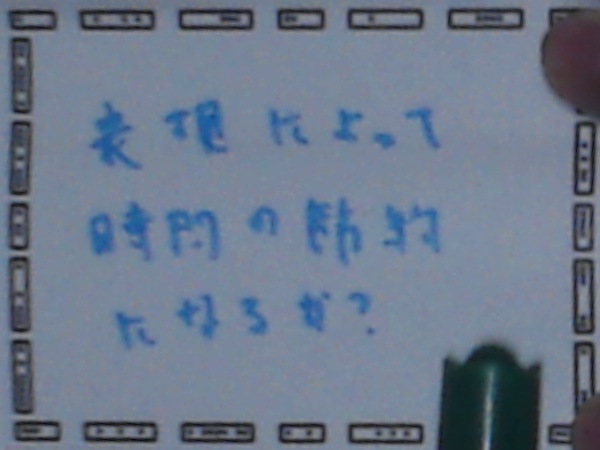 表現によって
時間の節約
になるか?